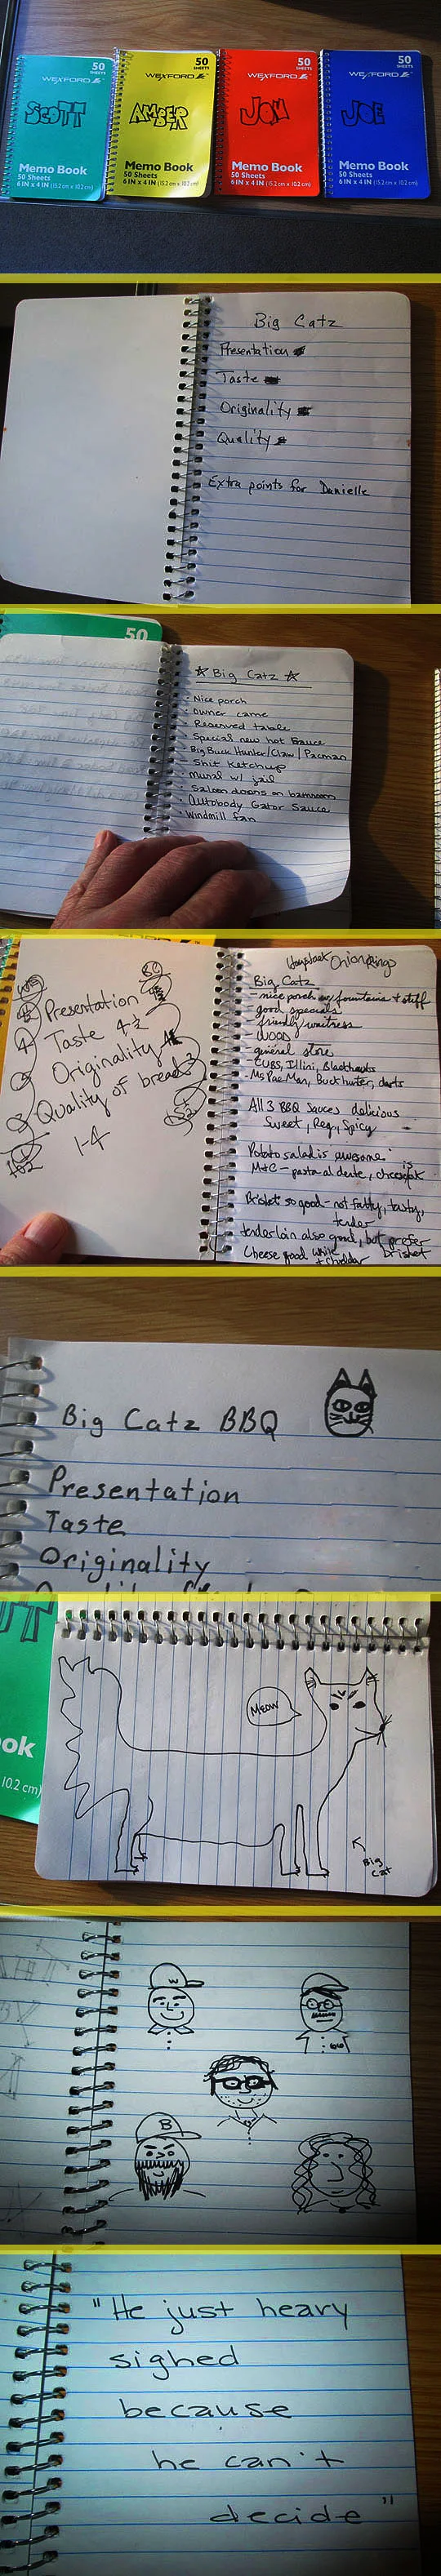 50 SHEETS
WEXFORD
SCOTT
Memo Book
50 Sheets
6 IN x 4 IN (15.2 cm x 10.2 cm)
50 SHEETS
WEXFORD
AMBER
Memo Book
50 Sheets
6 IN x 4 IN (15.2 cm x 10.2 cm)
50 SHEETS
WEXFORD
JON
Memo Book
50 Sheets
6 IN x 4 IN (15.2 cm x 10.2 cm)
50 SHEETS
WEXFORD
JOE
Memo Book
50 Sheets
6 IN x 4 IN (15.2 cm x 10.2 cm)
Big Catz
Presentation
Taste
Originality
Quality
Extra points for Danielle
50
Big Catz
Nice porch
Owner came
Reserved table
Special new hot sauce
Big Buck Hunter/Claw/Pacman
Shit Ketchup
Mural w/ jail
Saloon doors on bathroom
Autobody Gator Sauce
Windmill fan
Presentation
Taste 4½
Originality
Quality of bread?
1-4
Haystack Onion Rings
Big Catz
- nice porch w/ fountains + stuff
good specials
friendly waitress
- WOOD
- general store
- CUBS, Illini, Blackhawks
- Ms Pac Man, Buck hunter, darts
All 3 BBQ Sauces delicious
Sweet, Reg, Spicy
Potato salad is awesome
M+C - pasta al dente, cheese is
Brisket so good - not fatty, tasty,
tender
tenderloin also good, but prefer
brisket
Cheese good white
+ cheddar
Big Catz BBQ
Presentation
Taste
Originality
ook
10.2 cm)
MEOW
Big
Cat
W
B
"He just heavy
sighed
because
he can't
decide"